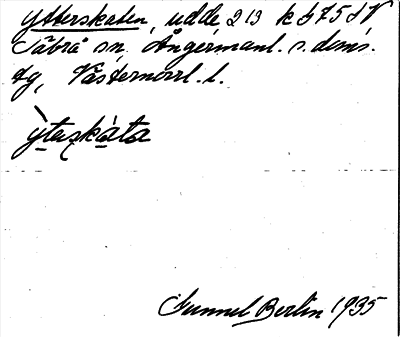 Ytterskaten, udde 213 k 575 d V
Säbrå sn. Ångermanl. s. doms.
tg, Västernorrl. l.
ỳterskáta
Gunnel Berlin 1935